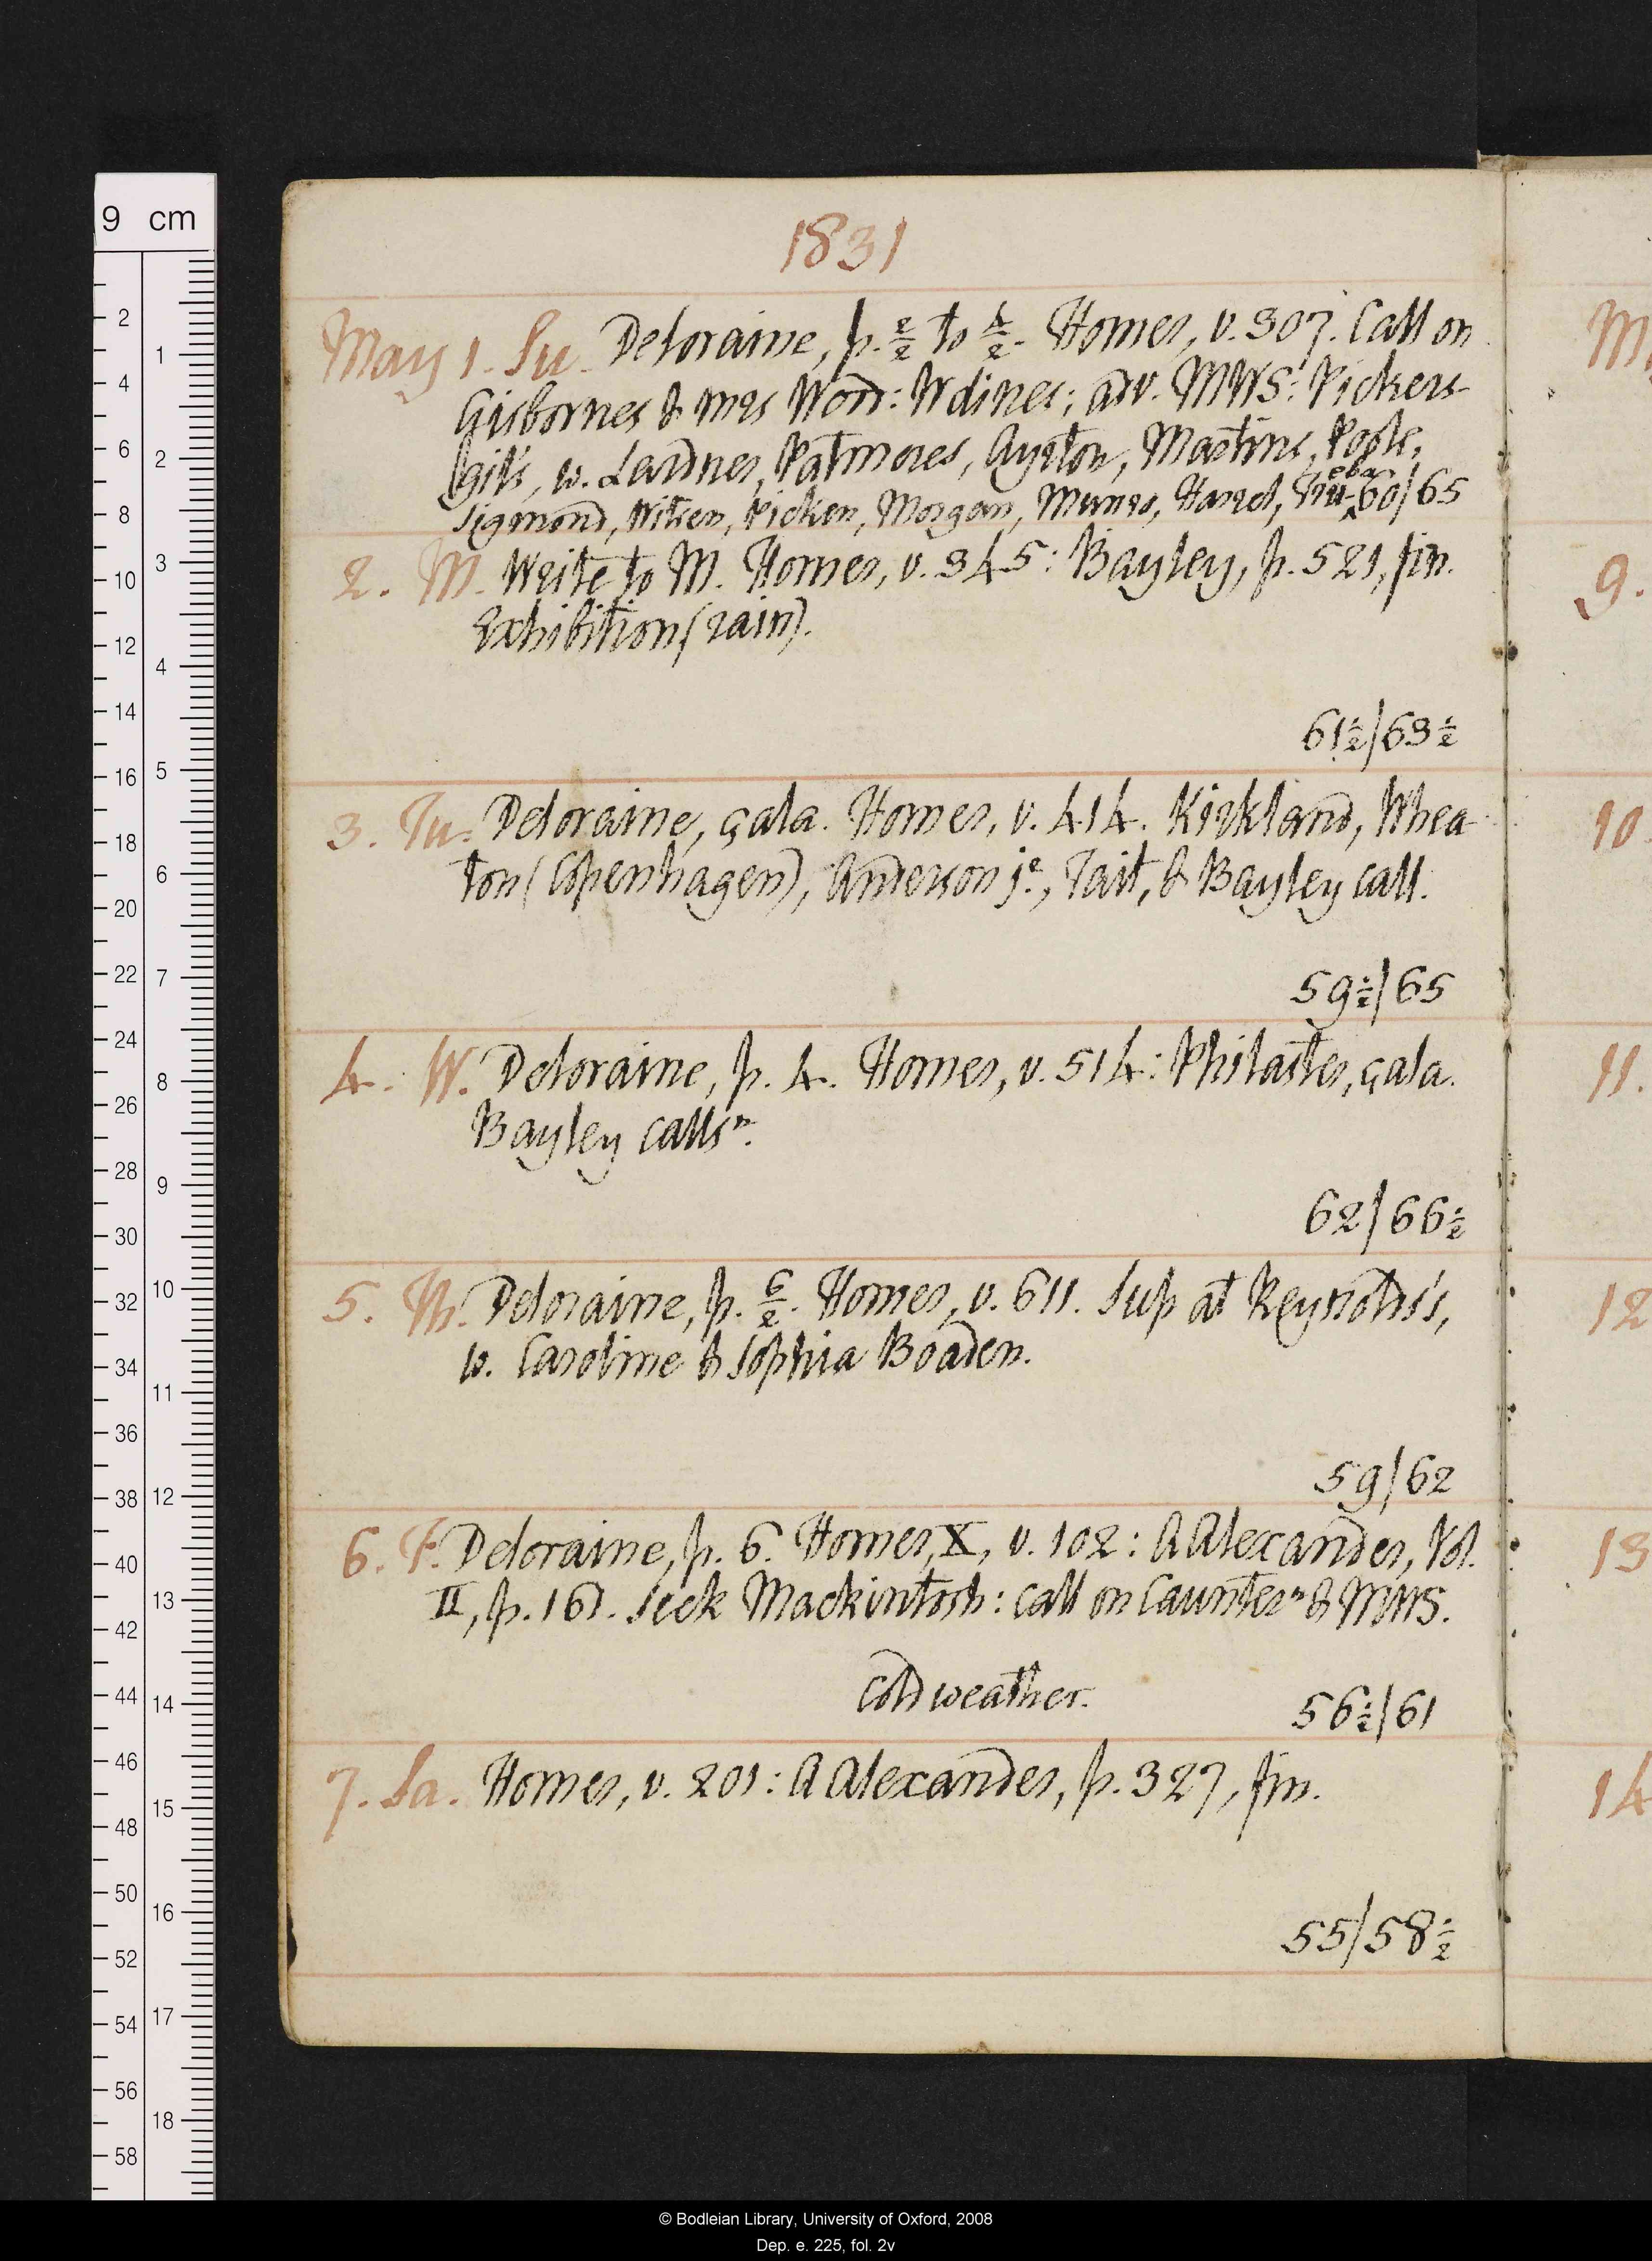 1831
May 1. Su. Deloraine, p. 2/2 to 4/2. Homer, v. 307. Call on
Gisbornes & Mrs Wood: W dines; adv. MWS: Pickers-
gill's, w. Lardner, Patmores, Ayrton, Martins, Poole,
Sigmond, Picken, Morgan, Munro, 60/65
2. M. Write to M. Homer, v. 345: Bayley, p. 521, fin.
Exhibition (rain).
61½/63½
3. Tu. Deloraine, çala. Homer, v. 414. Kirkland, Whea-
ton (Copenhagen), Anderson jr, Tait, & Bayley call.
59½/65
4. W. Deloraine, p. 4. Homer, v. 514: Philaster, çala.
Bayley calls n.
62/66½
5. Th. Deloraine, p. 6/2. Homer, v. 611. Sup at Reynolds's,
w. Caroline & Sophia Boaden.
59/62
6. F. Deloraine, p. 6. Homer, X, v. 102: A Alexander, Vol.
II, p. 161. Seek Mackintosh: call on Caunter n & MWS.
Cold weather. 56½/61
7. Sa. Homer, v. 201: A Alexander, p. 327, fin.
55/58½
M
9.
10.
11.
12
13
14
9 cm
2
4
6
8
10
12
14
16
18
20
22
24
26
28
30
32
34
36
38
40
42
44
46
48
50
52
54
56
58
1
2
3
4
5
6
7
8
9
10
11
12
13
14
15
16
17
18
© Bodleian Library, University of Oxford, 2008
Dep. e. 225, fol. 2v